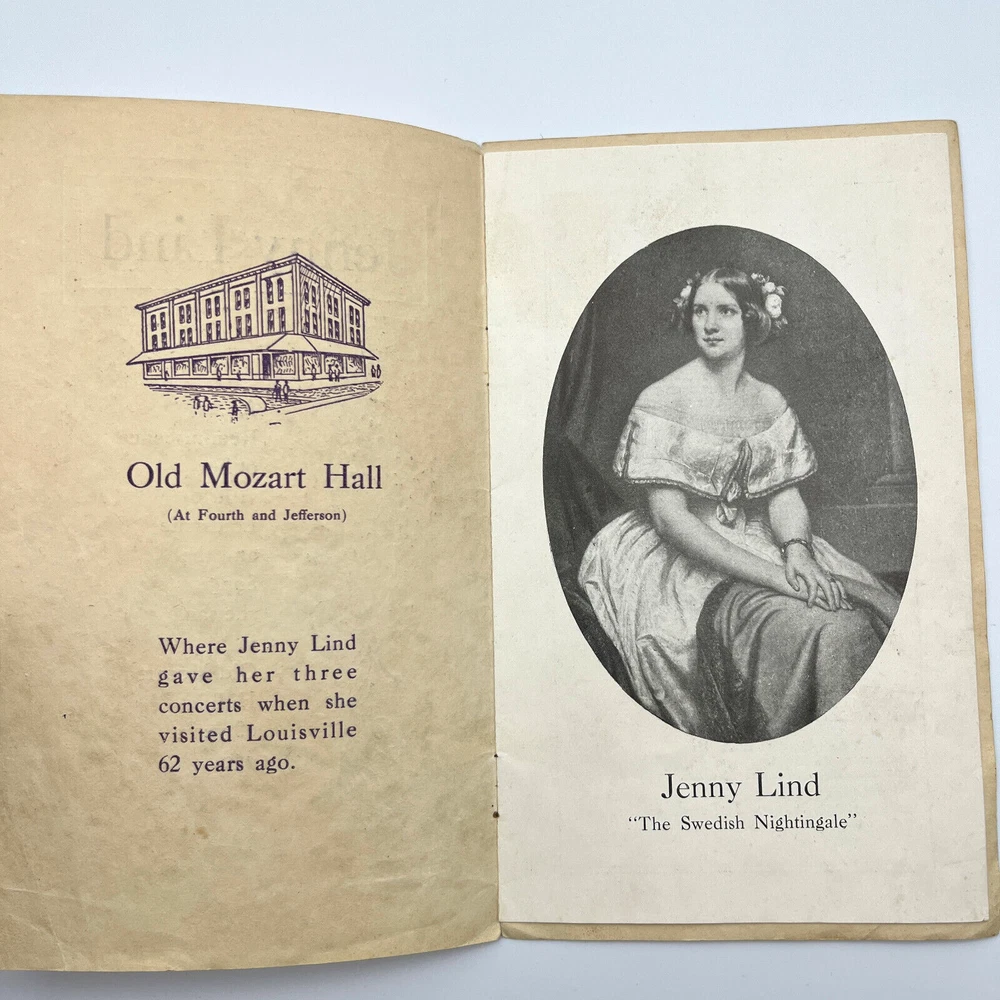 Old Mozart Hall
(At Fourth and Jefferson)
Where Jenny Lind
gave her three
concerts when she
visited Louisville
62 years ago.
Jenny Lind
"The Swedish Nightingale"